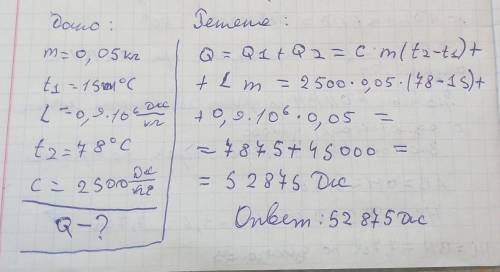 Дано:
m = 0,05 кг
t1 = 15 °C
L = 0,9·10⁶ Дж/кг
t2 = 78°C
c = 2500 Дж/кг
Q - ?
Решение:
Q = Q1 + Q2 = c m (t2-t1) +
+ L m = 2500·0,05·(78-15)+
+ 0,9·10⁶·0,05 =
= 7875 + 45000 =
= 52875 Дж
Ответ: 52875 Дж